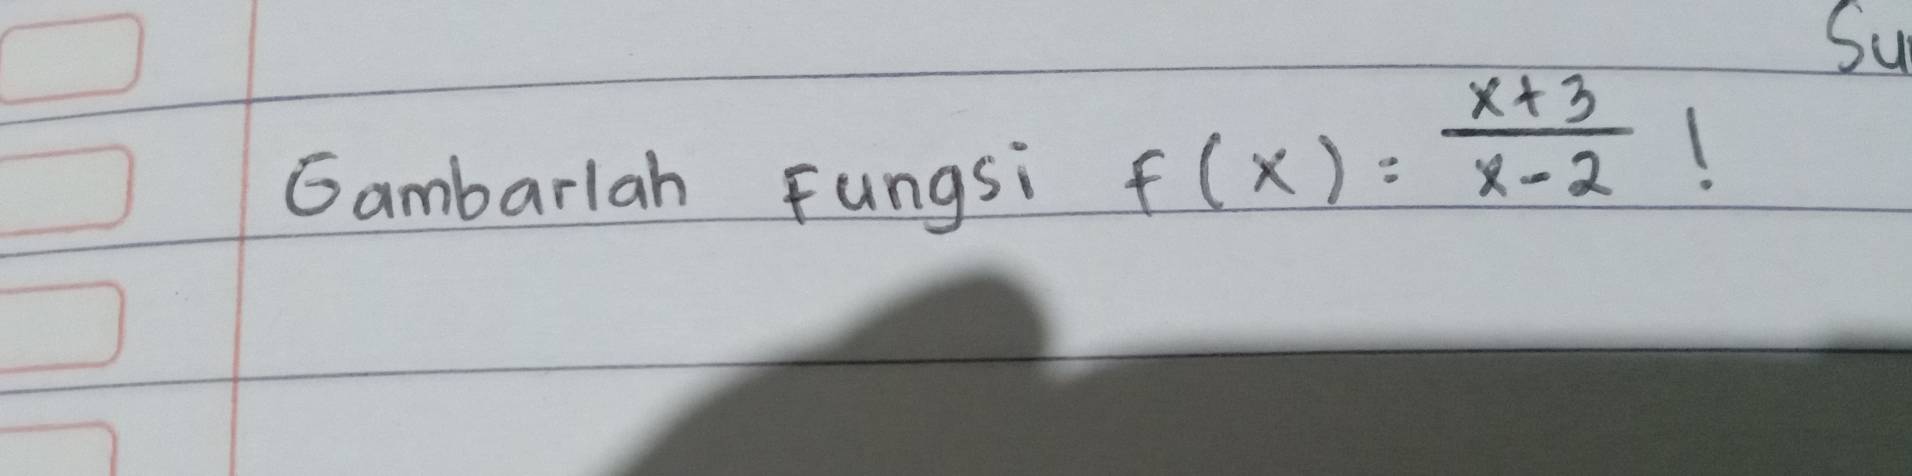 Gambarlah Fungsi f(x) = \frac{x+3}{x-2} !